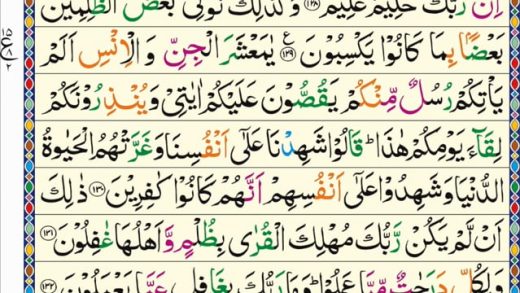 اِنَّ رَبَّكَ حَكِيْمٌ عَلِيْمٌ ﴿۱۲۸﴾ وَكَذٰلِكَ نُوَلِّیْ بَعْضَ الظّٰلِمِيْنَ
بَعْضًۢا بِمَا كَانُوْا يَكْسِبُوْنَ ﴿۱۲۹﴾ ع يٰمَعْشَرَ الْجِنِّ وَالْاِنْسِ اَلَمْ
يَاْتِكُمْ رُسُلٌ مِّنْكُمْ يَقُصُّوْنَ عَلَيْكُمْ اٰيٰتِیْ وَيُنْذِرُوْنَكُمْ
لِقَآءَ يَوْمِكُمْ هٰذَا ؕ قَالُوْا شَهِدْنَا عَلٰٓی اَنْفُسِنَا وَغَرَّتْهُمُ الْحَيٰوةُ
الدُّنْيَا وَشَهِدُوْا عَلٰٓی اَنْفُسِهِمْ اَنَّهُمْ كَانُوْا كٰفِرِيْنَ ﴿۱۳۰﴾ ذٰلِكَ
اَنْ لَّمْ يَكُنْ رَّبُّكَ مُهْلِكَ الْقُرٰی بِظُلْمٍ وَّاَهْلُهَا غٰفِلُوْنَ ﴿۱۳۱﴾
وَلِكُلٍّ دَرَجٰتٌ مِّمَّا عَمِلُوْا ؕ وَمَا رَبُّكَ بِغَافِلٍ عَمَّا يَعْمَلُوْنَ ﴿۱۳۲﴾